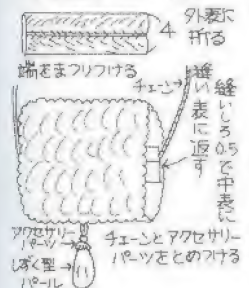 4
外表に
折る
端をまつりつける
チェーン
縫いしろ0.5で中表に
縫い表に返す
アクセサリー
パーツ
しずく型
パール
チェーンとアクセサリー
パーツをとめつける